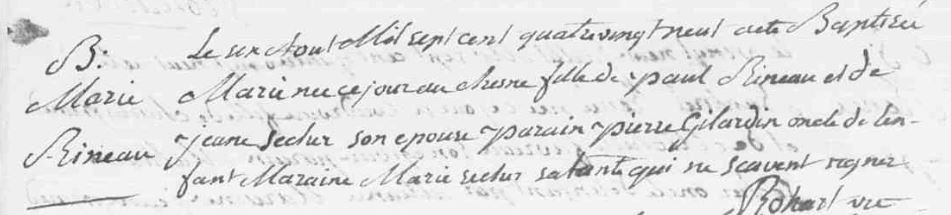 B:
Marie
Rineau
Le six Aout Mil sept cent quatre vingt neuf a ete Baptisée
Marie nee ce jour au chesne fille de paul Rineau et de
jeane secher son epouse parain pierre Gilardin oncle de l'en-
fant Maraine Marie secher sa tante qui ne scavent signer
Rohart vre